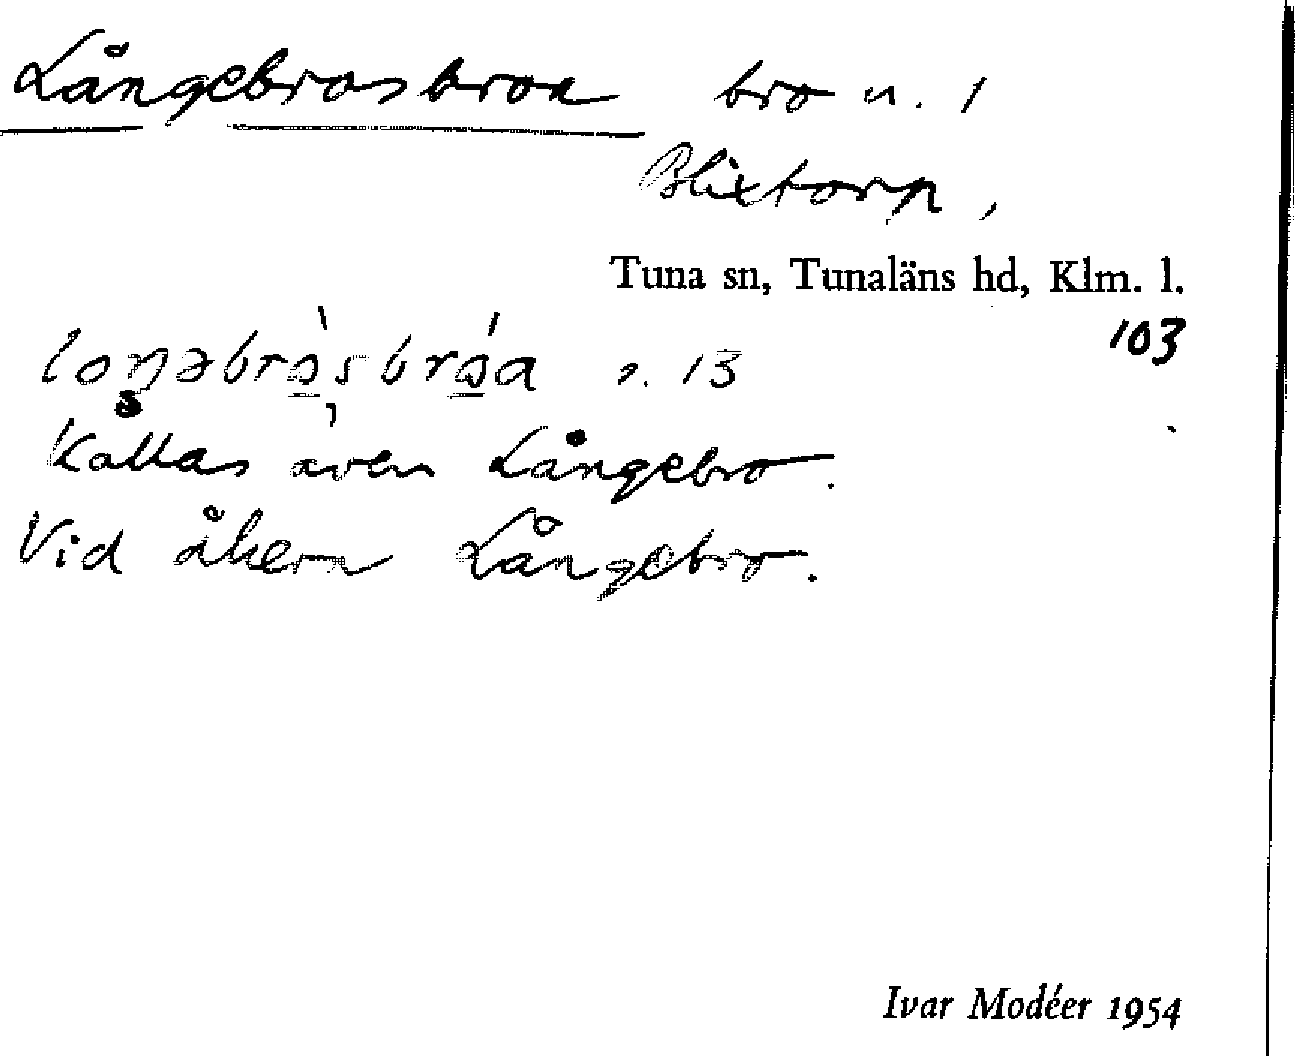 Långebrosbron bro u. 1
Blixtorp,
Tuna sn, Tunaläns hd, Klm. l.
103
loŋəbrò̱sbró̱a s. 13
Kallas även Långebro.
Vid åkern Långebro.
Ivar Modéer 1954